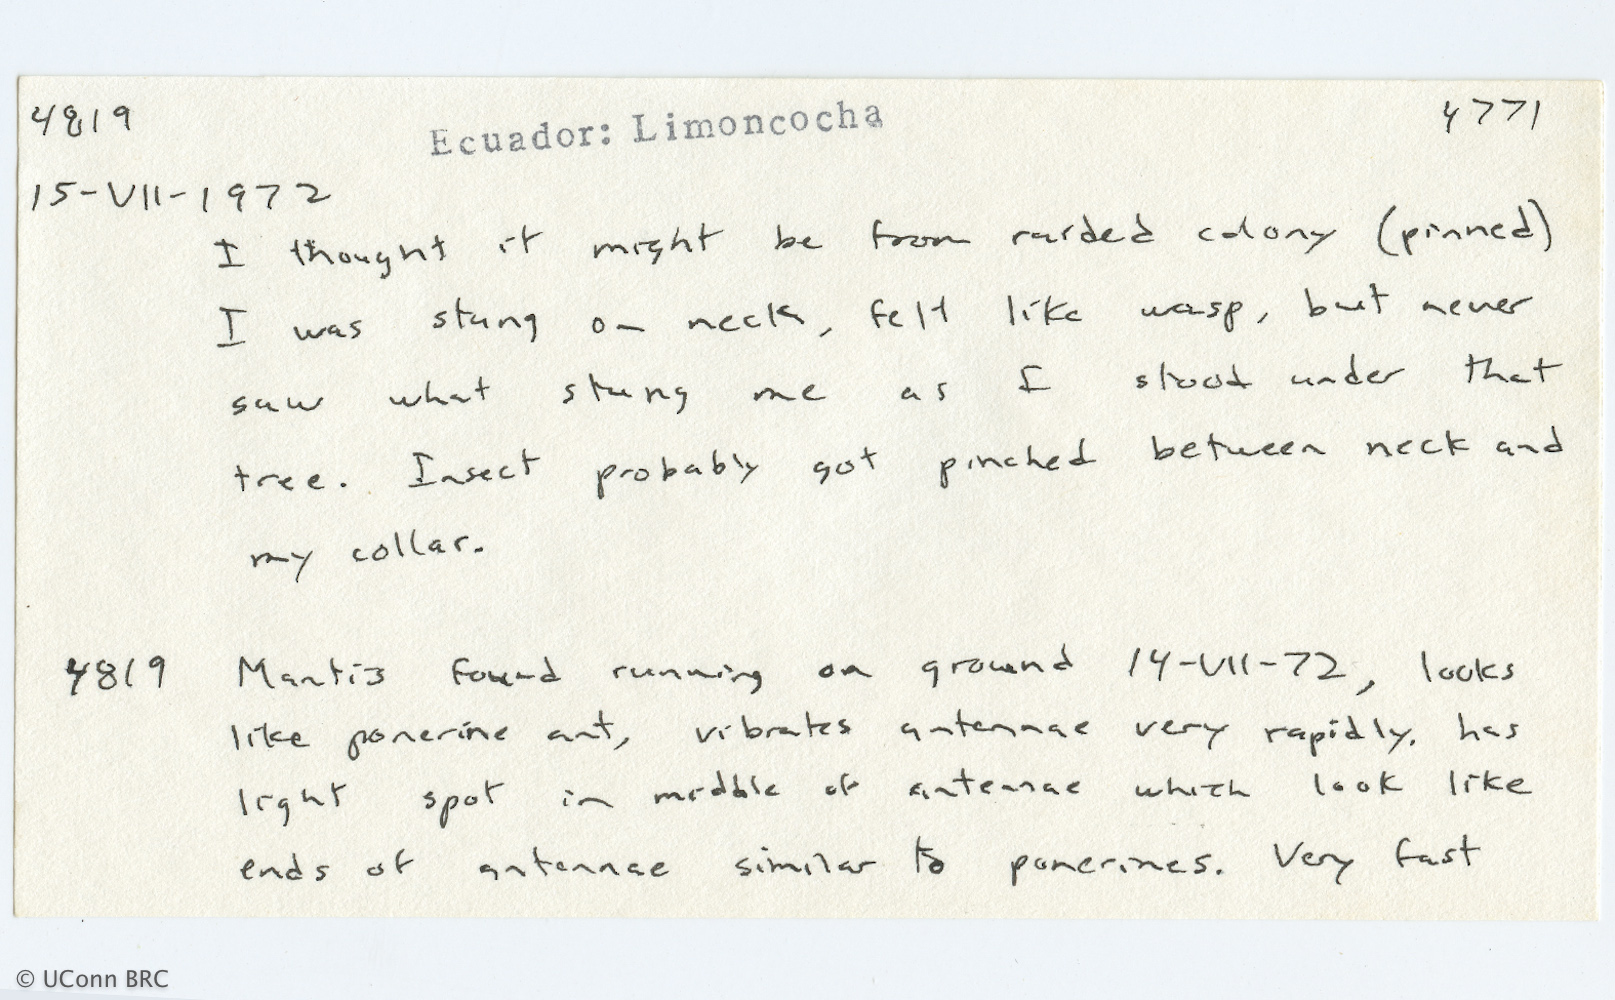 4819 Ecuador: Limoncocha 4771
15-VII-1972
I thought it might be from raided colony (pinned)
I was stung on neck, felt like wasp, but never
saw what stung me as I stood under that
tree. Insect probably got pinched between neck and
my collar.
4819 Mantis found running on ground 14-VII-72, looks
like ponerine ant, vibrates antennae very rapidly. has
light spot in middle of antennae which look like
ends of antennae similar to ponerines. Very fast
© UConn BRC